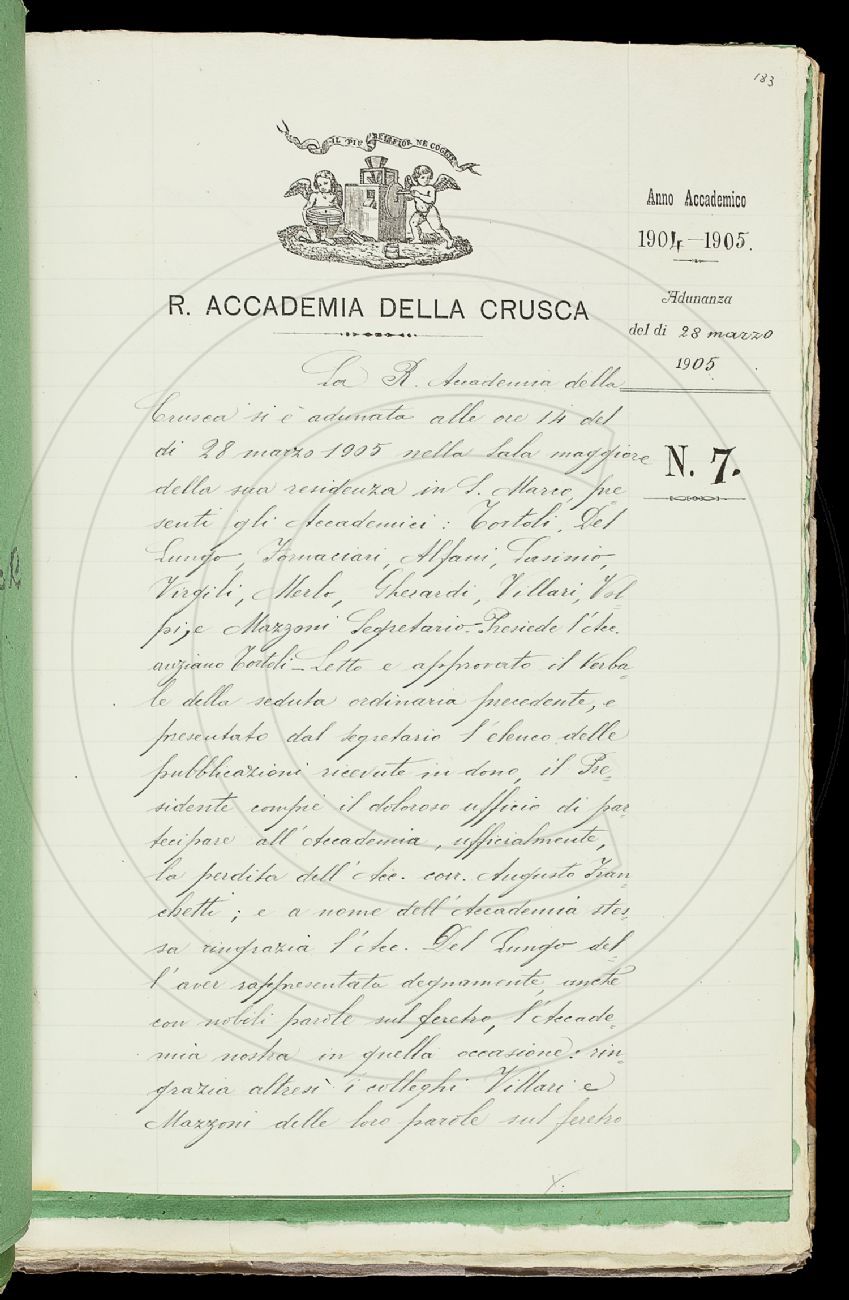 183
IL PIÙ BEL FIOR NE COGLIE
Anno Accademico
1904-1905.
Adunanza
del dì 28 marzo
1905
N. 7.
R. ACCADEMIA DELLA CRUSCA
La R. Accademia della
Crusca si è adunata alle ore 14 del
dì 28 marzo 1905 nella Sala maggiore
della sua residenza in S. Marco, pre
senti gli Accademici: Tortoli, Del
Lungo, Fornaciari, Alfani, Lasinio,
Virgili, Merlo, Gherardi, Villari, Vol-
pi, e Mazzoni Segretario. Presiede l'Acc.
anziano Tortoli - Letto e approvato il Verba-
le della seduta ordinaria precedente, e
presentato dal Segretario l'elenco delle
pubblicazioni ricevute in dono, il Pre-
sidente compie il doloroso ufficio di par-
tecipare all'Accademia, ufficialmente,
la perdita dell'Acc. corr. Augusto Fran-
chetti; e a nome dell'Accademia stes-
sa ringrazia l'Acc. Del Lungo del-
l'aver rappresentata degnamente, anche
con nobili parole sul feretro, l'Accade-
mia nostra in quella occasione: rin-
grazia altresì i colleghi Villari e
Mazzoni delle loro parole sul feretro